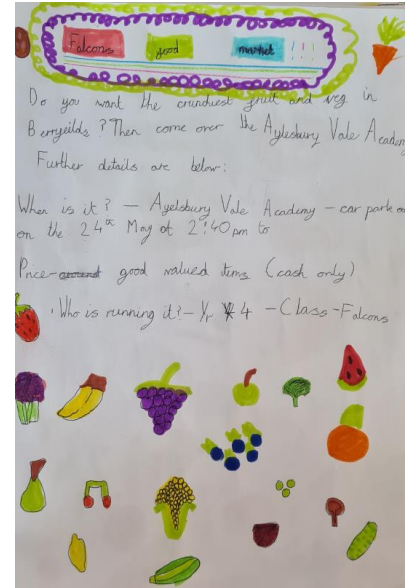 Falcons good market !!!
Do you want the crunchiest fruit and veg in
Berryfeilds? Then come over the Aylesbury Vale Academy
Further details are below:
When is it? – Ayelsbury Vale Academy – car park
on the 24th May at 2:40pm to
Price- around good valued items (cash only)
Who is running it? – Yr 4 – Class – Falcons